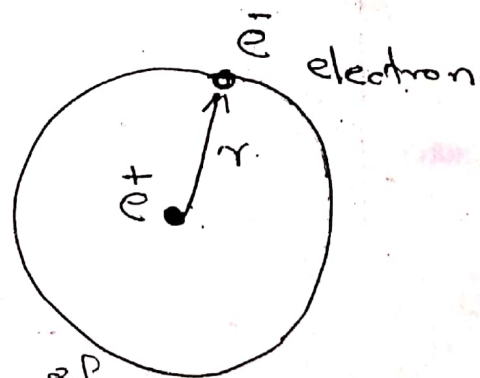 e⁻ electron
r.
e⁺